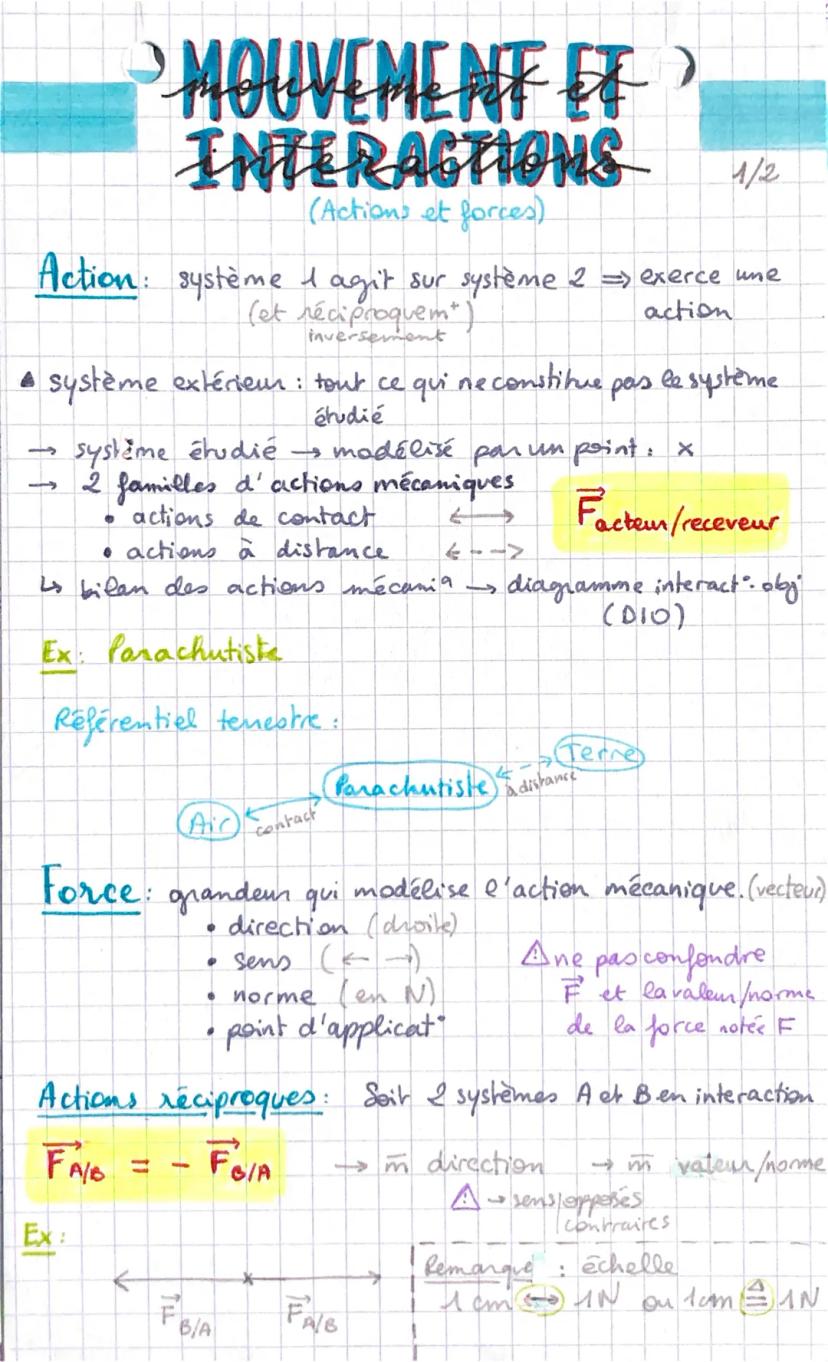 MOUVEMENT ET
mouvement et
INTERACTIONS
interactions
1/2
(Actions et forces)
Action : système 1 agit sur système 2 ⇒ exerce une
(et réciproquem^t) action
inversement
▲ système extérieur : tout ce qui ne constitue pas le système
étudié
→ système étudié → modélisé par un point : x
→ 2 familles d'actions mécaniques
• actions de contact ⟷
• actions à distance <--->
F⃗ acteur/receveur
↳ bilan des actions mécani^q → diagramme interact°. obj
(DIO)
Ex : Parachutiste
Référentiel terrestre :
Terre
Parachutiste
à distance
Air
contact
Force : grandeur qui modélise l'action mécanique. (vecteur)
• direction (droite)
• sens (← →)
• norme (en N)
• point d'applicat°
⚠ ne pas confondre
F⃗ et la valeur/norme
de la force notée F
Actions réciproques : Soit 2 systèmes A et B en interaction
F⃗ A/B = - F⃗ B/A → m̄ direction → m̄ valeur/norme
⚠ → sens opposés
contraires
Ex :
F⃗ B/A F⃗ A/B
Remarque : échelle
1 cm ⟷ 1N ou 1cm ≙ 1N